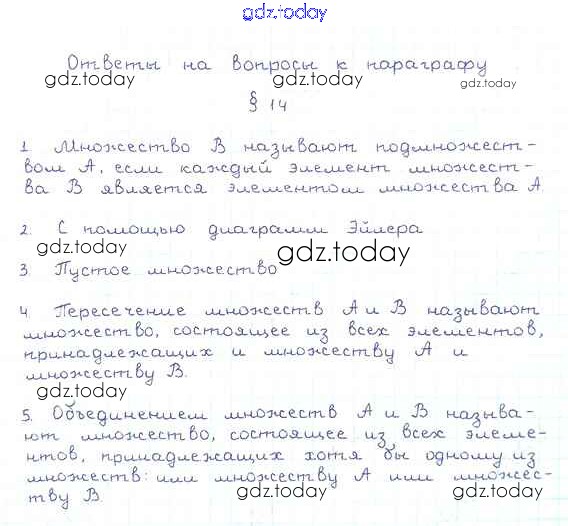 gdz.today
Ответы на вопросы к параграфу
gdz.today gdz.today gdz.today
§ 14
1. Множество В называют подмножест-
вом А, если каждый элемент множест-
ва В является элементом множества А.
2. С помощью диаграмм Эйлера
gdz.today gdz.today
3. Пустое множество
4. Пересечение множеств А и В называют
множество, состоящее из всех элементов,
принадлежащих и множеству А и
множеству В.
gdz.today
5. Объединением множеств А и В называ-
ют множество, состоящее из всех элеме-
gdz.today
нтов, принадлежащих хотя бы одному из
множеств: или множеству А или множес-
тву В.
gdz.today gdz.today gdz.today